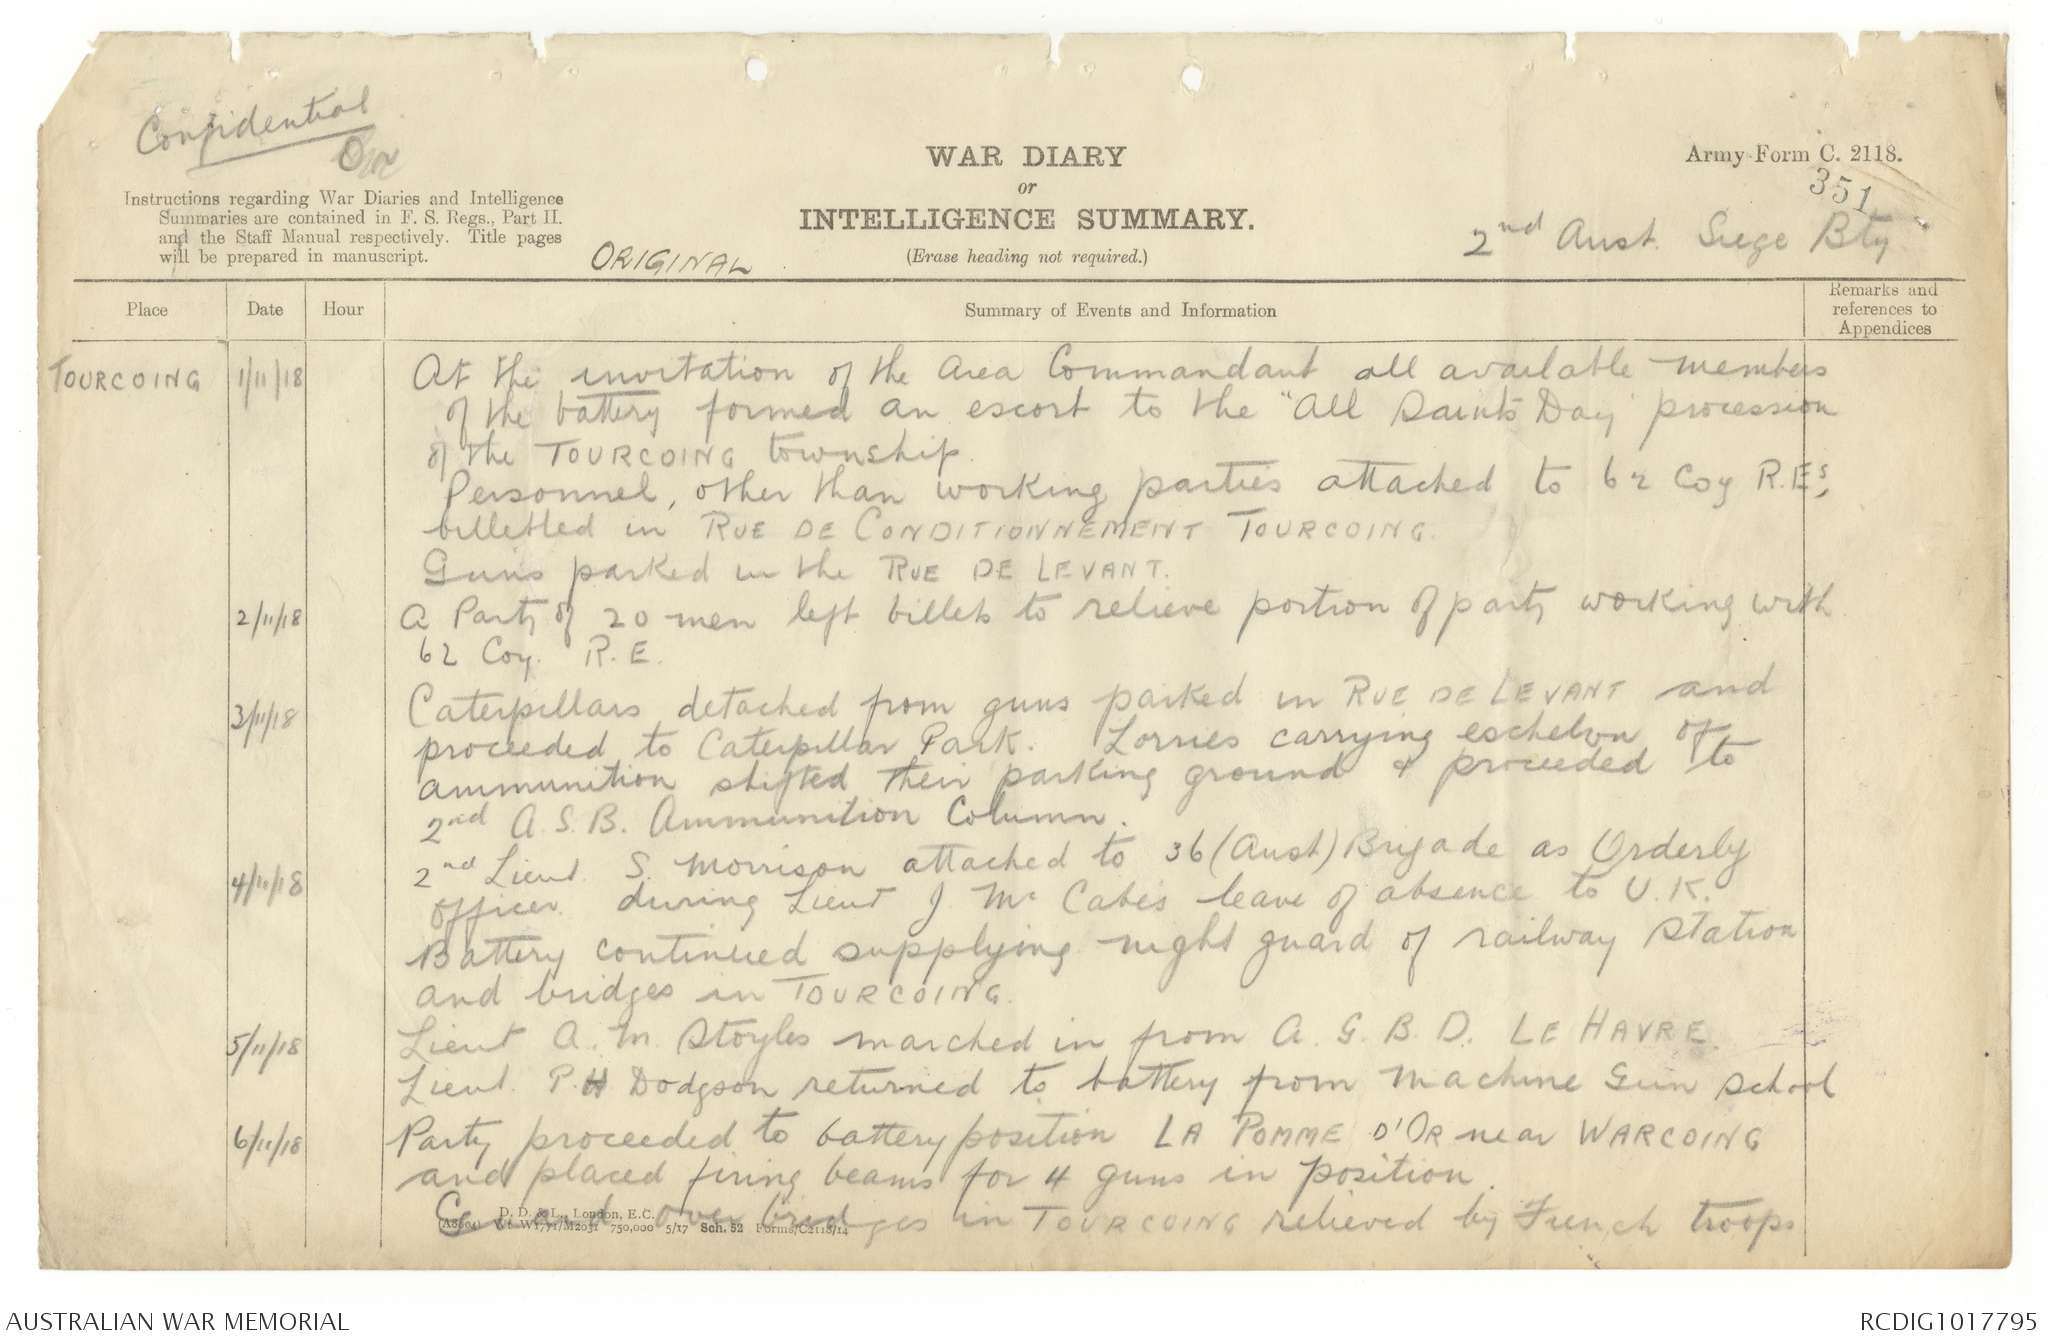 Confidential
WAR DIARY
or
INTELLIGENCE SUMMARY.
(Erase heading not required.)
Army Form C. 2118.
351
2nd Aust. Siege Bty
Instructions regarding War Diaries and Intelligence
Summaries are contained in F. S. Regs., Part II.
and the Staff Manual respectively. Title pages
will be prepared in manuscript.
ORIGINAL
Place Date Hour Summary of Events and Information Remarks and references to Appendices
TOURCOING 1/11/18 At the invitation of the Area Commandant all available members
of the battery formed an escort to the "All Saints Day" procession
of the TOURCOING township.
Personnel, other than working parties attached to 62 Coy R.Es,
billetted in RUE DE CONDITIONNEMENT TOURCOING.
Guns parked in the RUE DE LEVANT.
2/11/18 A Party of 20 men left billets to relieve portion of party working with
62 Coy. R.E.
3/11/18 Caterpillars detached from guns parked in RUE DE LEVANT and
proceeded to Caterpillar Park. Lorries carrying eschelon of
ammunition shifted their parking ground & proceeded to
2nd A.S.B. Ammunition Column.
4/11/18 2nd Lieut. S. Morrison attached to 36 (Aust) Brigade as Orderly
Officer during Lieut J. Mc Cabe's leave of absence to U.K.
Battery continued supplying night guard of railway station
and bridges in TOURCOING.
5/11/18 Lieut A. M. Stoyles marched in from A.G.B.D. LE HAVRE.
Lieut. P.H Dodgson returned to battery from Machine Gun School
6/11/18 Party proceeded to battery position LA POMME D'OR near WARCOING
and placed firing beams for 4 guns in position.
Guard over bridges in TOURCOING relieved by French troops
D. D. & L., London, E.C.
Wt W1771/M2031 750,000 5/17 Sch. 52 Forms/C2118/14
AUSTRALIAN WAR MEMORIAL
RCDIG1017795